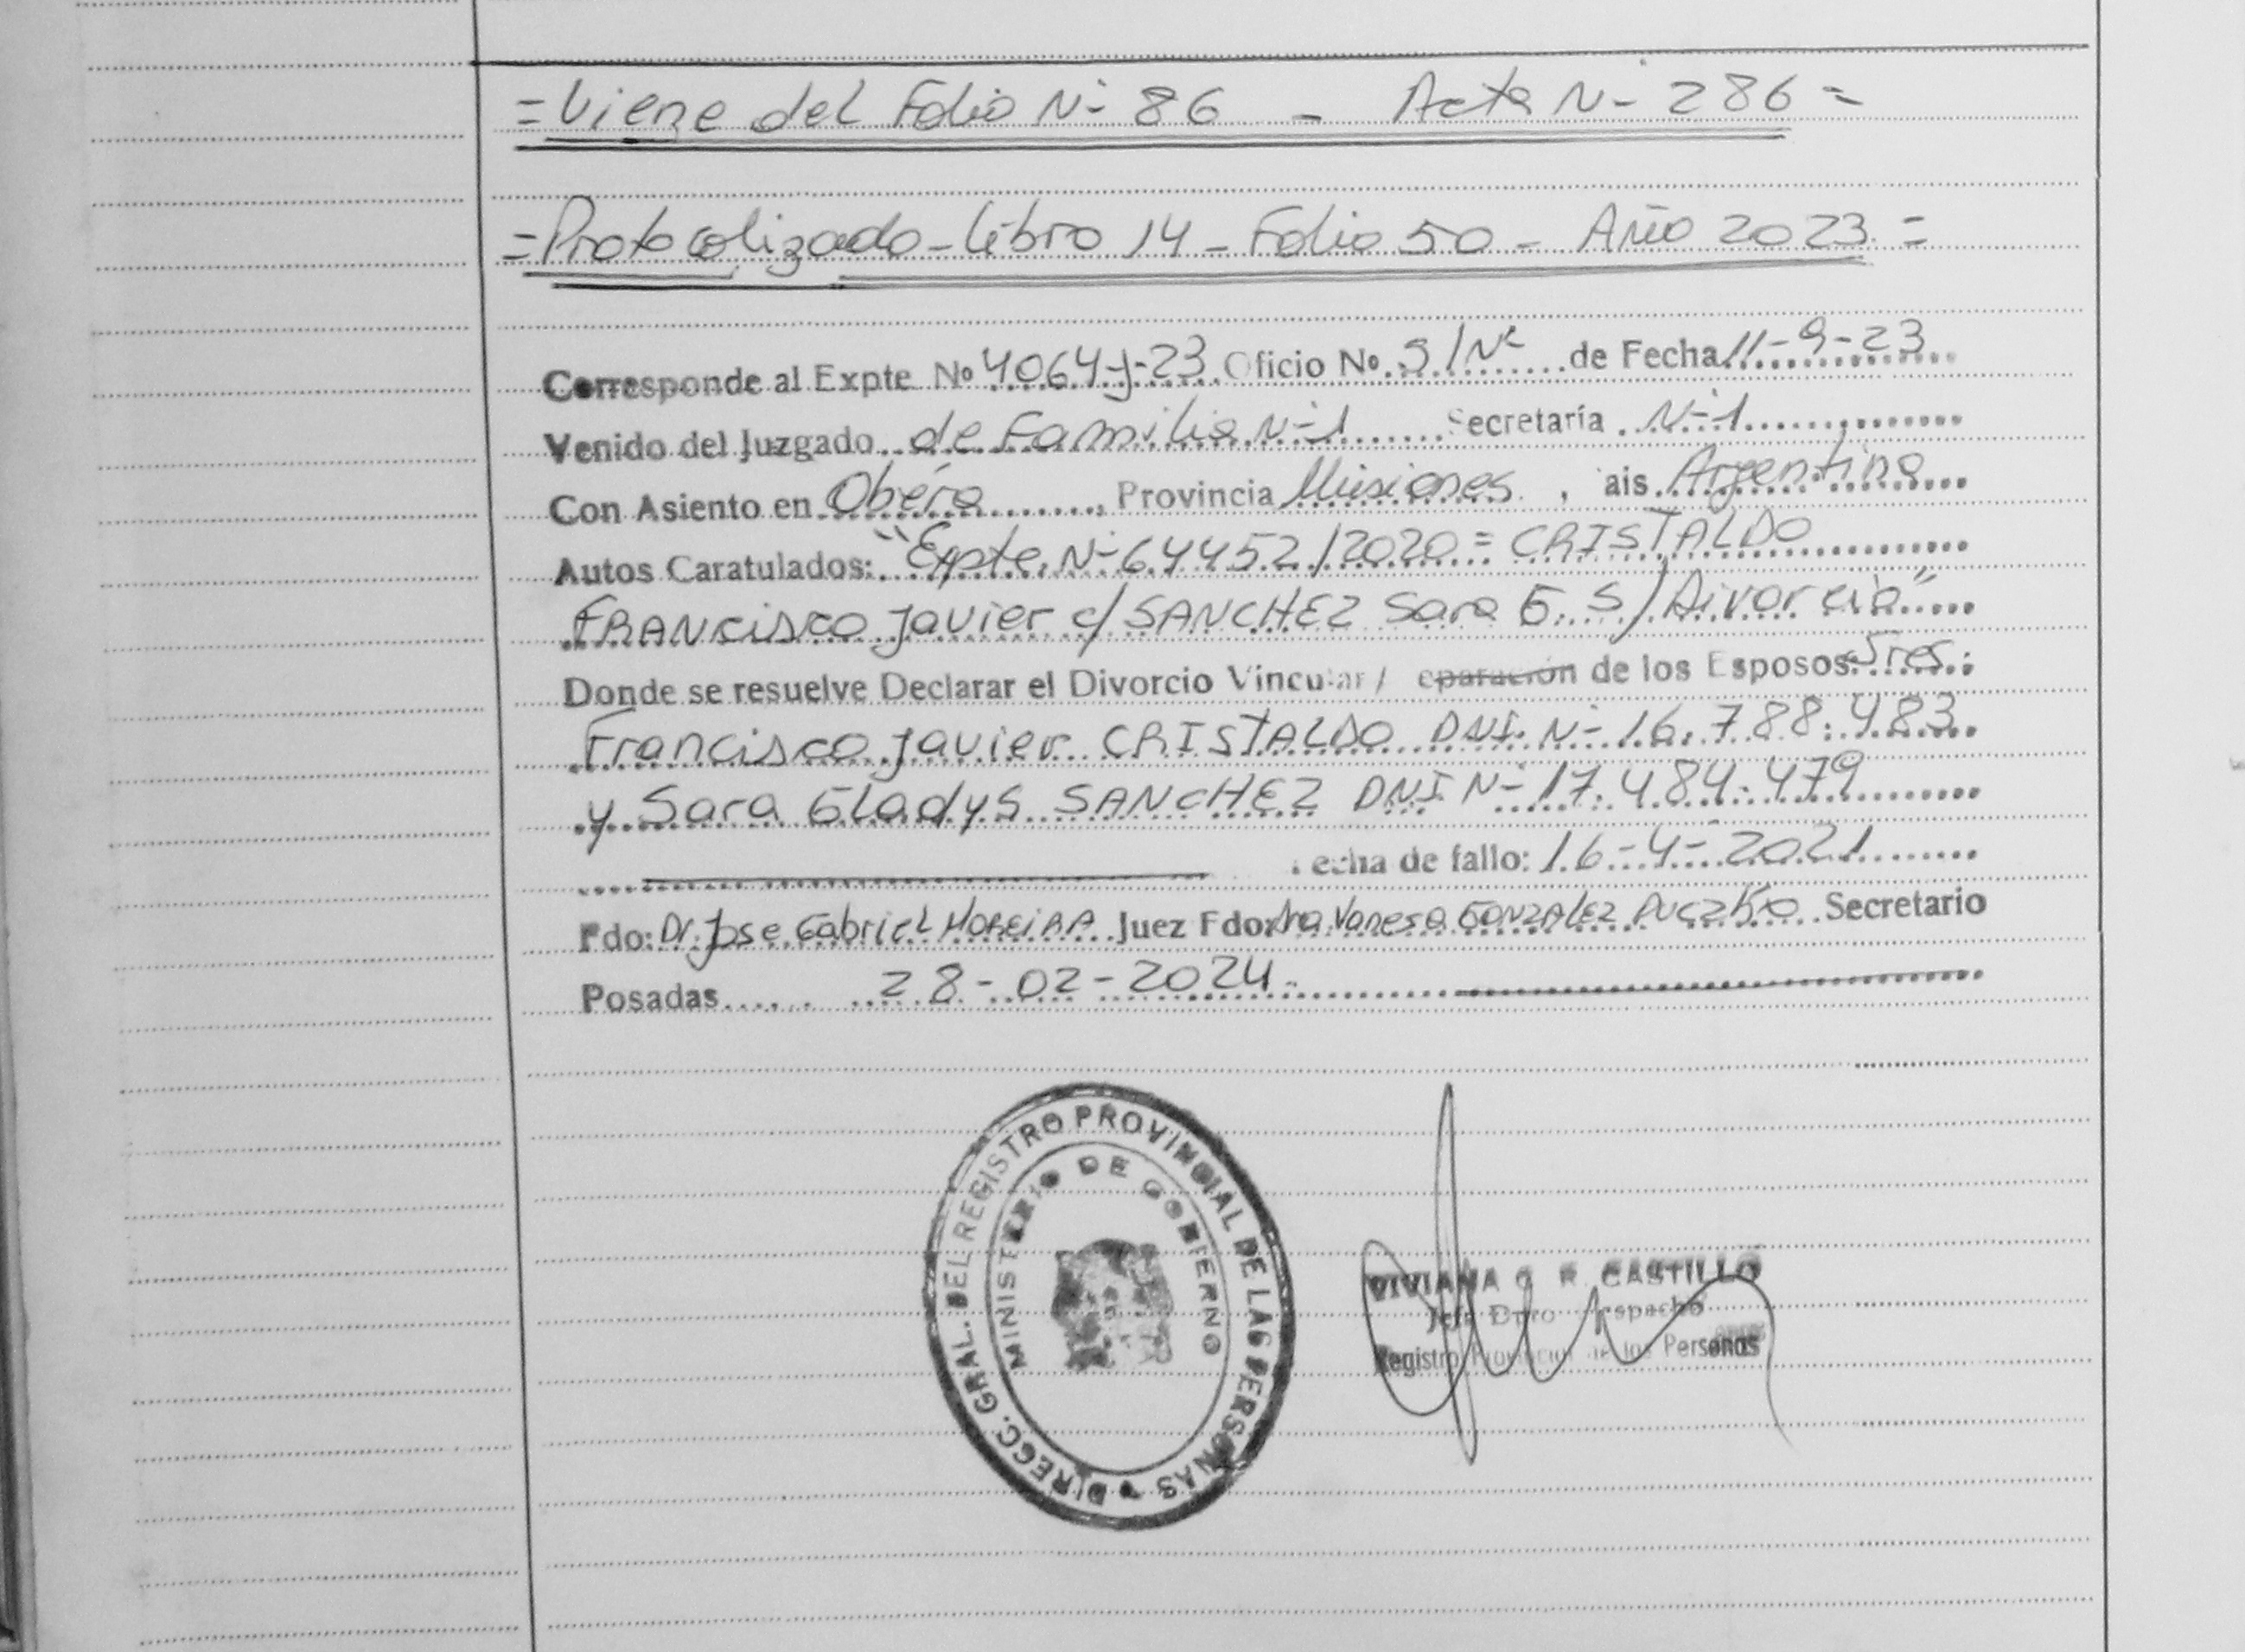 = Viene del Folio N- 86 - Acta N- 286 =
= Protocolizado - Libro 14 - Folio 50 - Año 2023 =
Corresponde al Expte Nº 4064-J-23 Oficio No. S/Nº de Fecha 11-9-23
Venido del Juzgado de Familia N-1 Secretaría N-1
Con Asiento en Oberá, Provincia Misiones, ais Argentina
Autos Caratulados: "Expte. N- 64452/2020 = CRISTALDO
FRANCISCO Javier c/ SANCHEZ Sara G. S/ Divorcio"
Donde se resuelve Declarar el Divorcio Vincular / eparación de los Esposos: Sres.:
Francisco Javier CRISTALDO DNI. N- 16.788.483
y Sara Gladys SANCHEZ DNI N- 17.484.479
echa de fallo: 16-4-2021
Fdo: Dr. Jose Gabriel MOREIRA Juez Fdo: Dra Vanesa GONZALEZ Secretario
Posadas 28-02-2024.
DIRECC. GRAL. DEL REGISTRO PROVINCIAL DE LAS PERSONAS
MINISTERIO DE GOBIERNO
VIVIANA R. CASTILLO
Jefa Dpto Despacho
Registro Provincial de las Personas